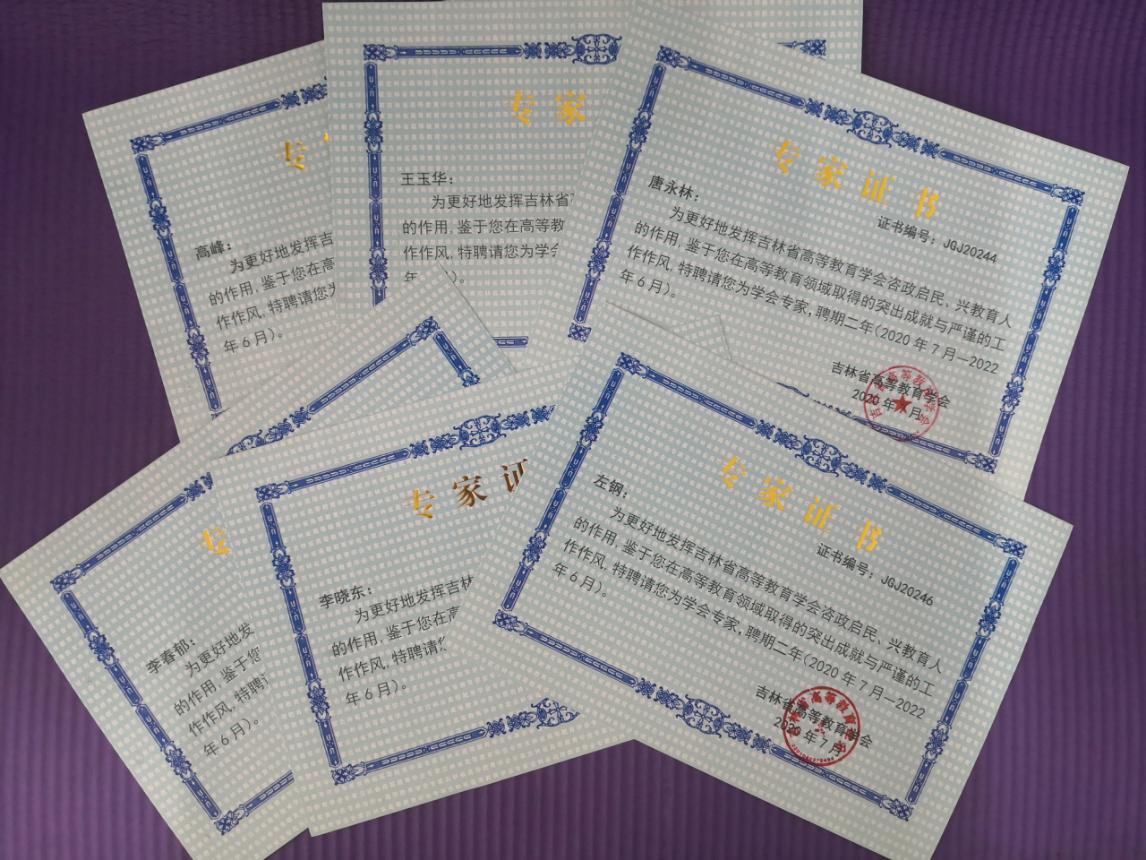 专
高峰:
为更好地发挥吉
的作用,鉴于您在高
作作风,特聘请您为
年6月)。
专家
王玉华:
为更好地发挥吉林省
的作用,鉴于您在高等教
作作风,特聘请您为学
年
专家证书
证书编号: JGJ20244
唐永林:
为更好地发挥吉林省高等教育学会咨政启民、兴教育人
的作用,鉴于您在高等教育领域取得的突出成就与严谨的工
作作风,特聘请您为学会专家,聘期二年(2020年7月—2022
年6月)。
吉林省高等教育学会
2020年7月
专
李春郁:
为更好地发
的作用,鉴于您
作作风,特聘
年6月)。
专家证
李晓东:
为更好地发挥吉林
的作用,鉴于您在高
作作风,特聘请您
年6月)。
专家证书
证书编号: JGJ20246
左钢:
为更好地发挥吉林省高等教育学会咨政启民、兴教育人
的作用,鉴于您在高等教育领域取得的突出成就与严谨的工
作作风,特聘请您为学会专家,聘期二年(2020年7月—2022
年6月)。
吉林省高等教育学会
2020年7月